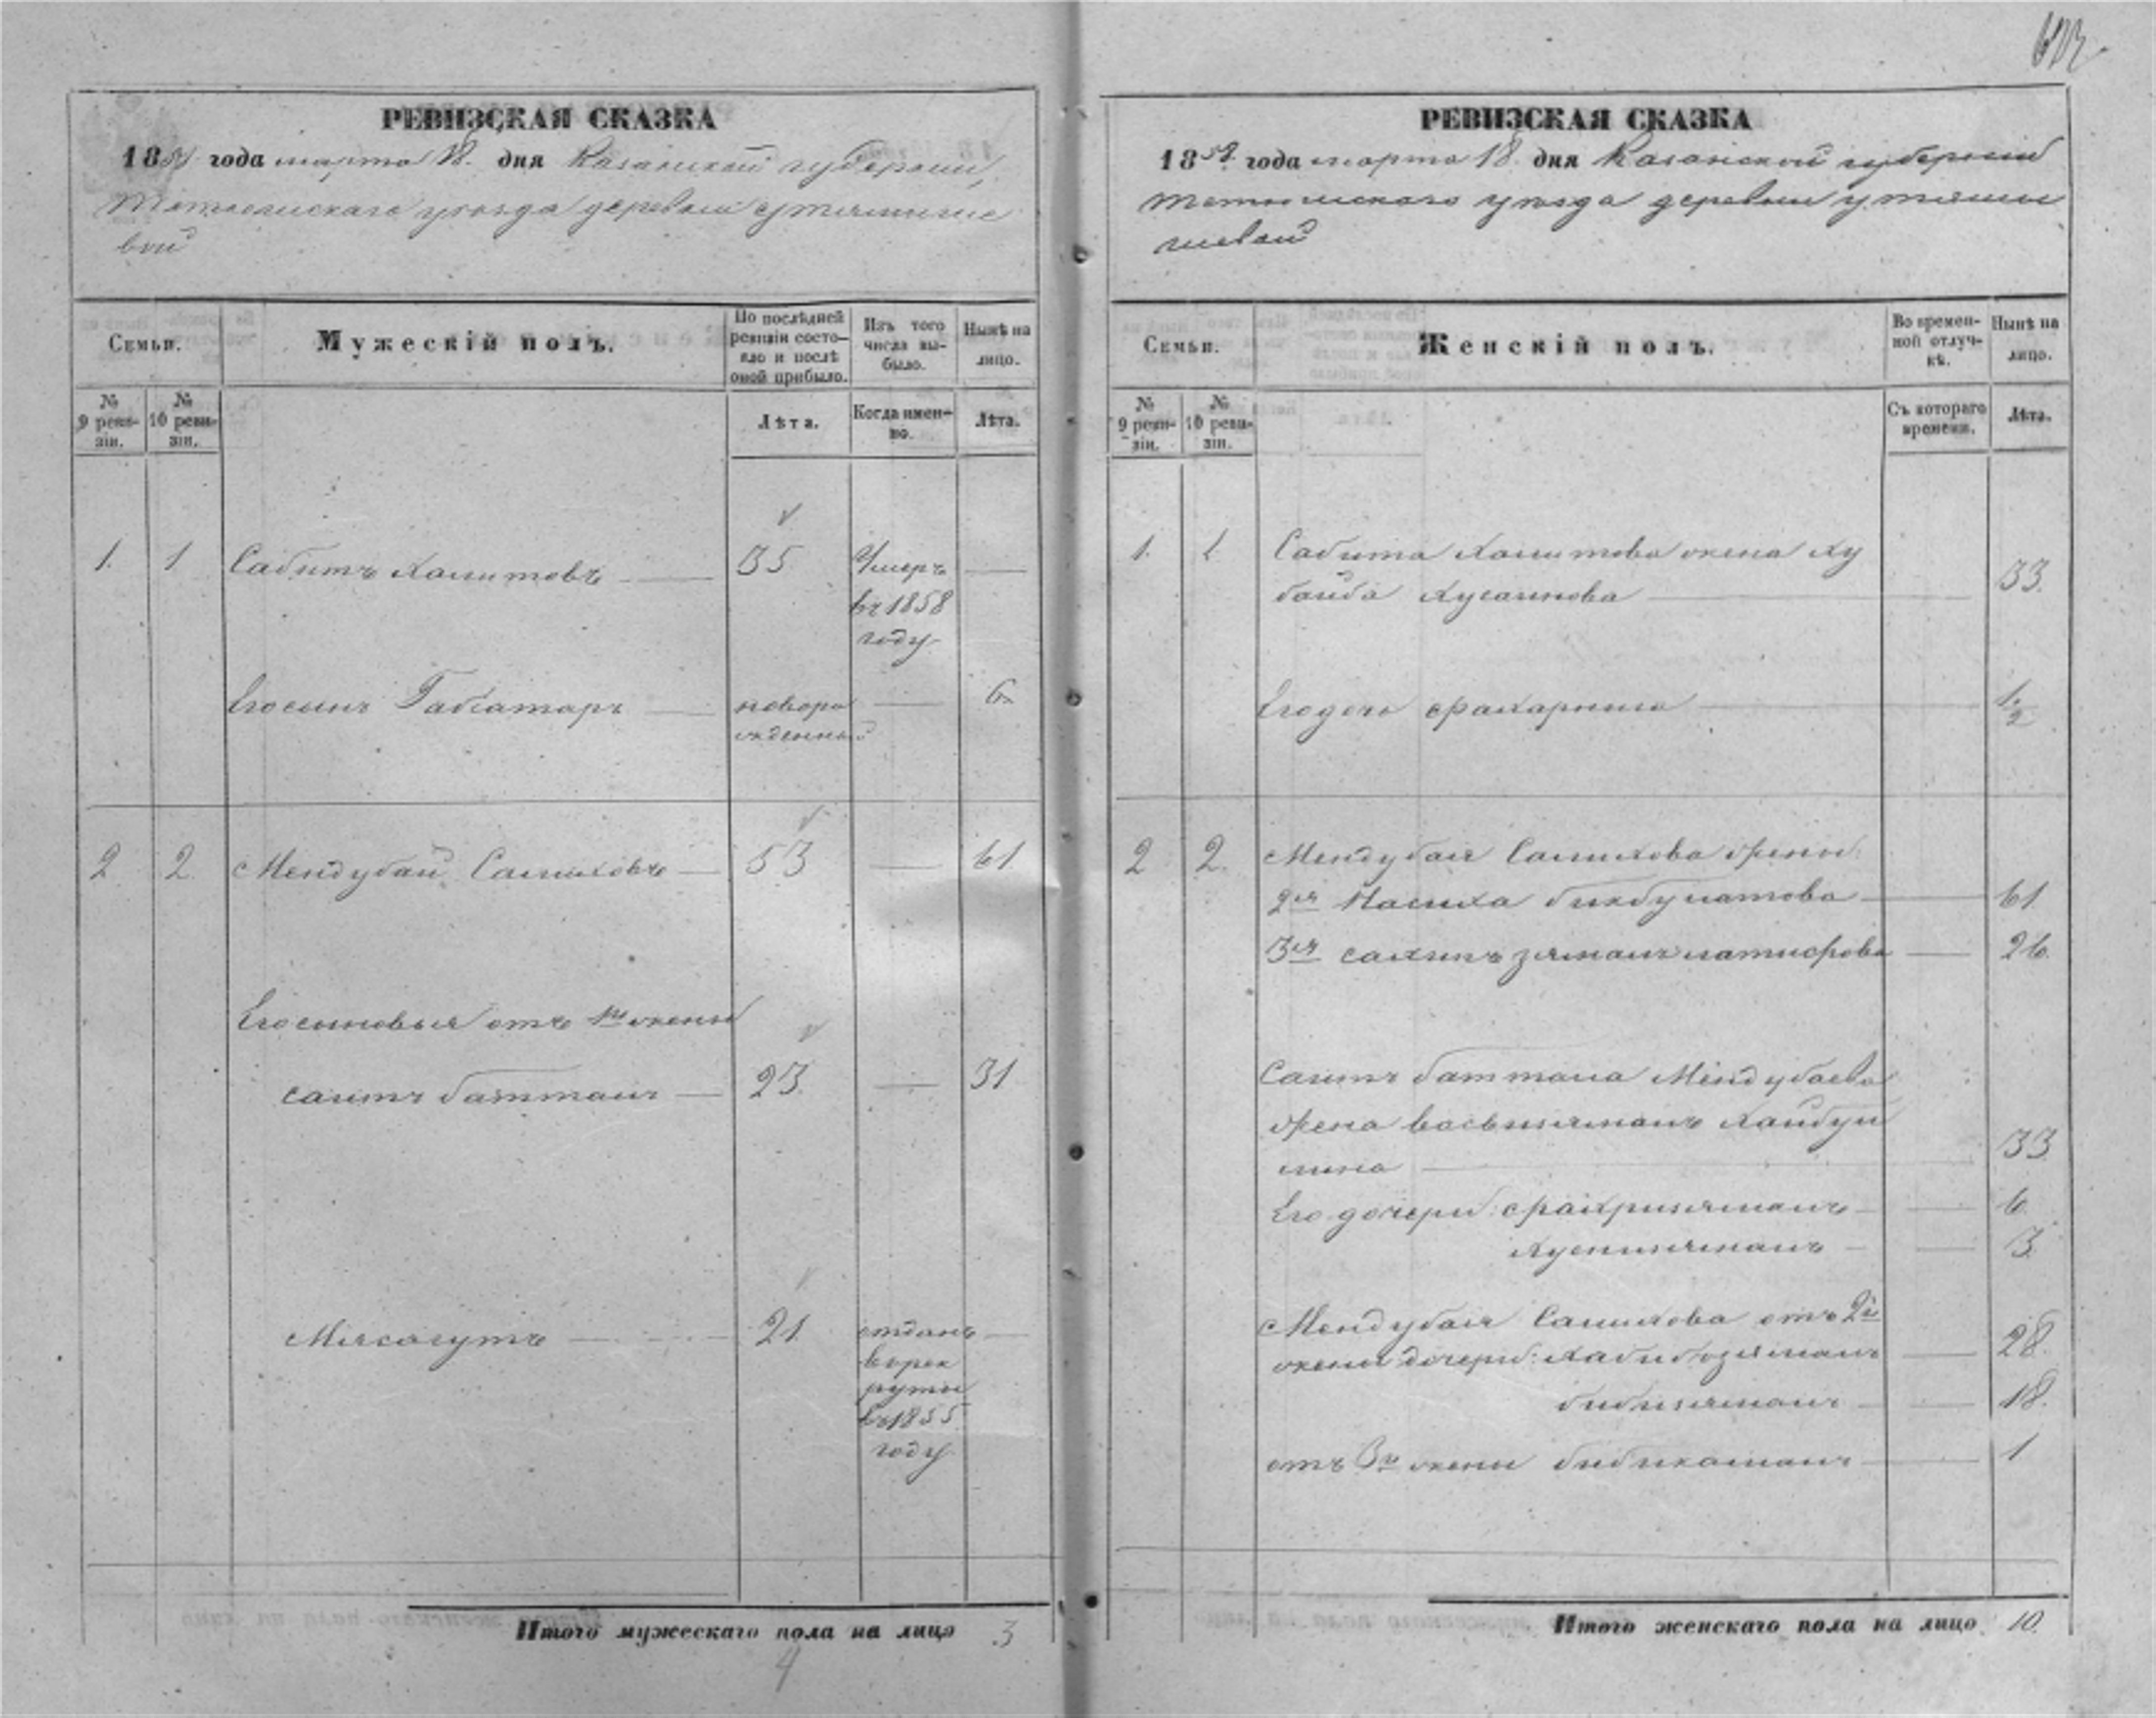 РЕВИЗСКАЯ СКАЗКА
1858 года марта 18 дня Казанской губернии,
Тетюшскаго уезда деревни Утямыше
вой
Семьи.
Мужескій полъ.
По послѣдней ревизіи состояло и послѣ оной прибыло.
Изъ того числа выбыло.
Нынѣ на лицо.
№ 9 ревизіи.
№ 10 ревизіи.
Лѣта.
Когда именно.
Лѣта.
1. 1 Сабитъ Хамитовъ 35 Умеръ
въ 1858
году
Его сынъ Габсатаръ новоро 6
жденный
2 2. Мендубай Салиховъ 53 61
Его сыновья отъ 1й жены
Саитъ Баттал 23. 31
Мясагутъ 21 отданъ
в рек
руты
в 1855
году
Итого мужескаго пола на лицо 3
4
РЕВИЗСКАЯ СКАЗКА
1858 года марта 18 дня Казанской губернии
Тетюшскаго уезда деревни Утямы
шевой
Семьи.
Женскій полъ.
Во временной отлучкѣ.
Нынѣ на лицо.
№ 9 ревизіи.
№ 10 ревизіи.
Съ котораго времени.
Лѣта.
1. 1. Сабита Хамитова жена Ху
байба Хусаинова 33.
Его дочь 1/2
2 2. Мендубая Салихова жены
2я Насиха Бикбулатова 61
3я Латифова 26
Саитъ Баттала Мендубаева
жена Хайбул
лина 33
Его дочери: 6
3.
Мендубая Салихова отъ 2й
жены дочери: 28.
18.
отъ 3й жены 1
Итого женскаго пола на лицо 10.